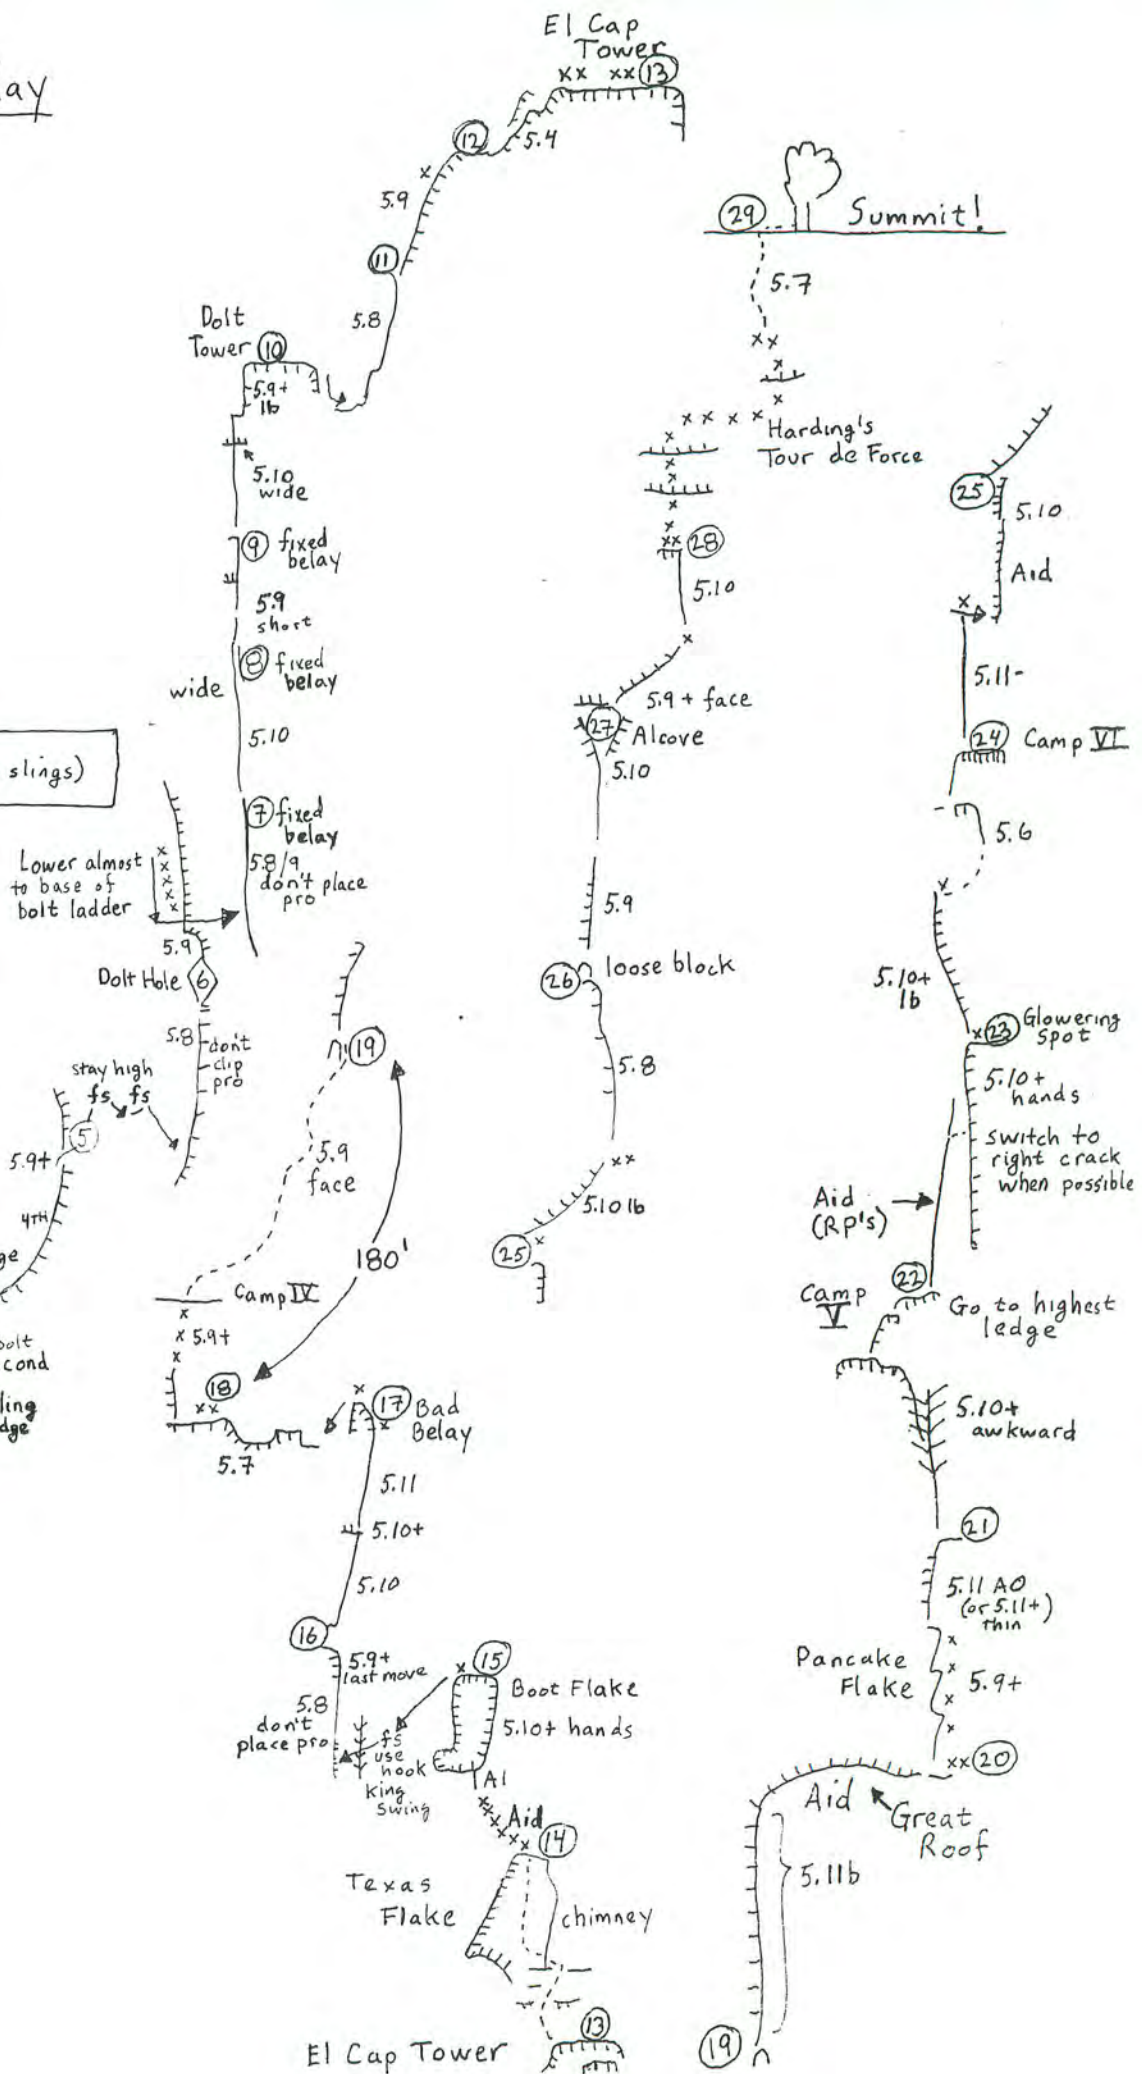 ay
El Cap
Tower
xx xx 13
12
5.4
x
5.9
11
5.8
Dolt
Tower 10
5.9+
lb
5.10
wide
9 fixed
belay
5.9
short
8 fixed
belay
wide
5.10
slings)
7 fixed
belay
5.8/9
don't place
pro
Lower almost
to base of
bolt ladder
x
x
x
x
x
5.9
Dolt Hole 6
5.8
don't
clip
pro
stay high
fs fs
5
5.9+
4TH
ge
bolt
cond
ling
dge
19
5.9
face
180'
Camp IV
x
x 5.9+
x
18
xx
5.7
x
17 Bad
x Belay
5.11
5.10+
5.10
16
5.9+
last move
5.8
don't
place pro
fs
use
hook
king
swing
x 15
Boot Flake
5.10+ hands
A1
xxx
Aid
xxxx
14
Texas
Flake
chimney
13
El Cap Tower
29
Summit!
5.7
xx
x
x
x x x x
Harding's
Tour de Force
x
x
x
x
x
xx 28
5.10
x
5.9+ face
27
Alcove
5.10
5.9
26
loose block
5.8
xx
5.10 lb
25
x
25
5.10
Aid
x
5.11-
24 Camp VI
5.6
x
5.10+
lb
x 23 Glowering
Spot
5.10+
hands
switch to
right crack
when possible
Aid
(RP's)
22
Camp
V
Go to highest
ledge
5.10+
awkward
21
5.11 A0
(or 5.11+)
thin
Pancake
Flake
x
x
x
x
5.9+
xx 20
Aid
Great
Roof
5.11b
19